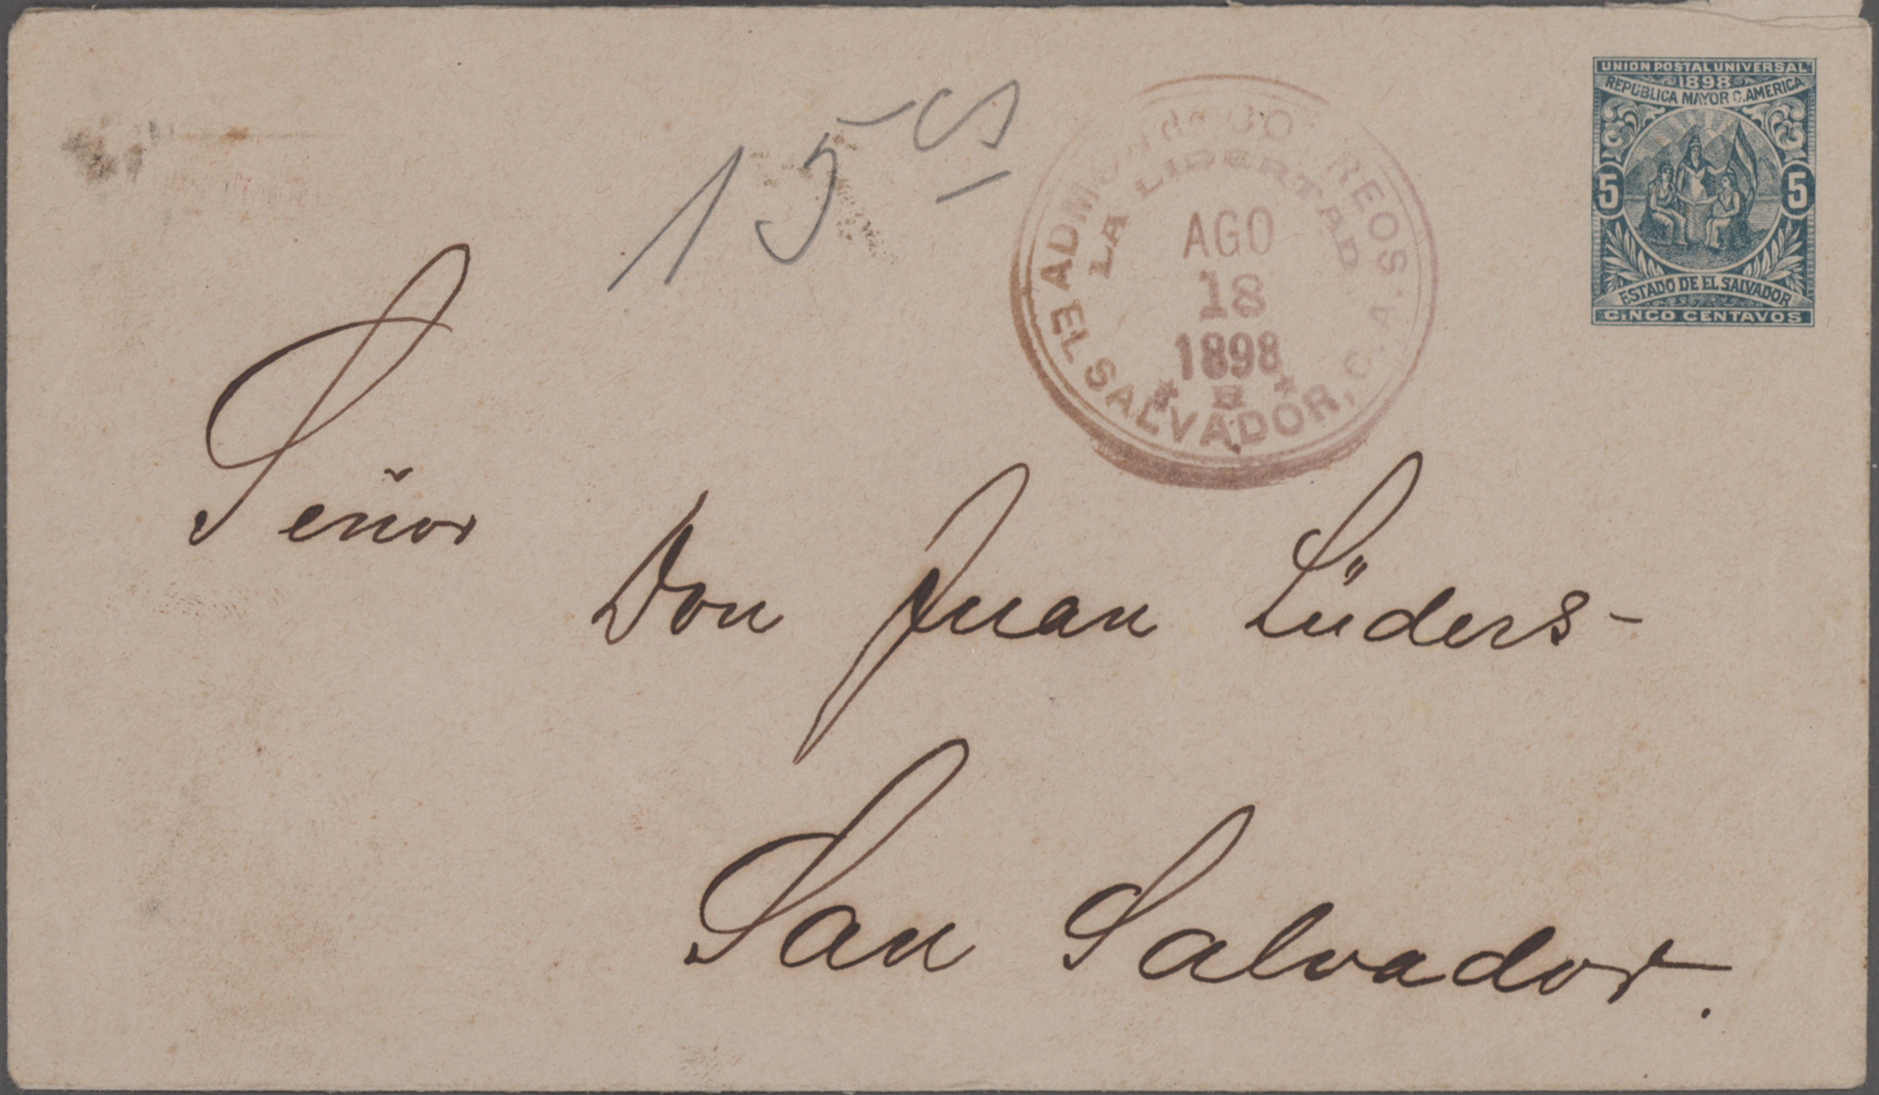 UNION POSTAL UNIVERSAL
1898
REPUBLICA MAYOR C. AMERICA
5 5
ESTADO DE EL SALVADOR
CINCO CENTAVOS
15 cs
ADMON de CORREOS.
LA LIBERTAD
AGO
18
1898
EL SALVADOR, C. A.
Señor
Don Juan Lüders-
San Salvador.